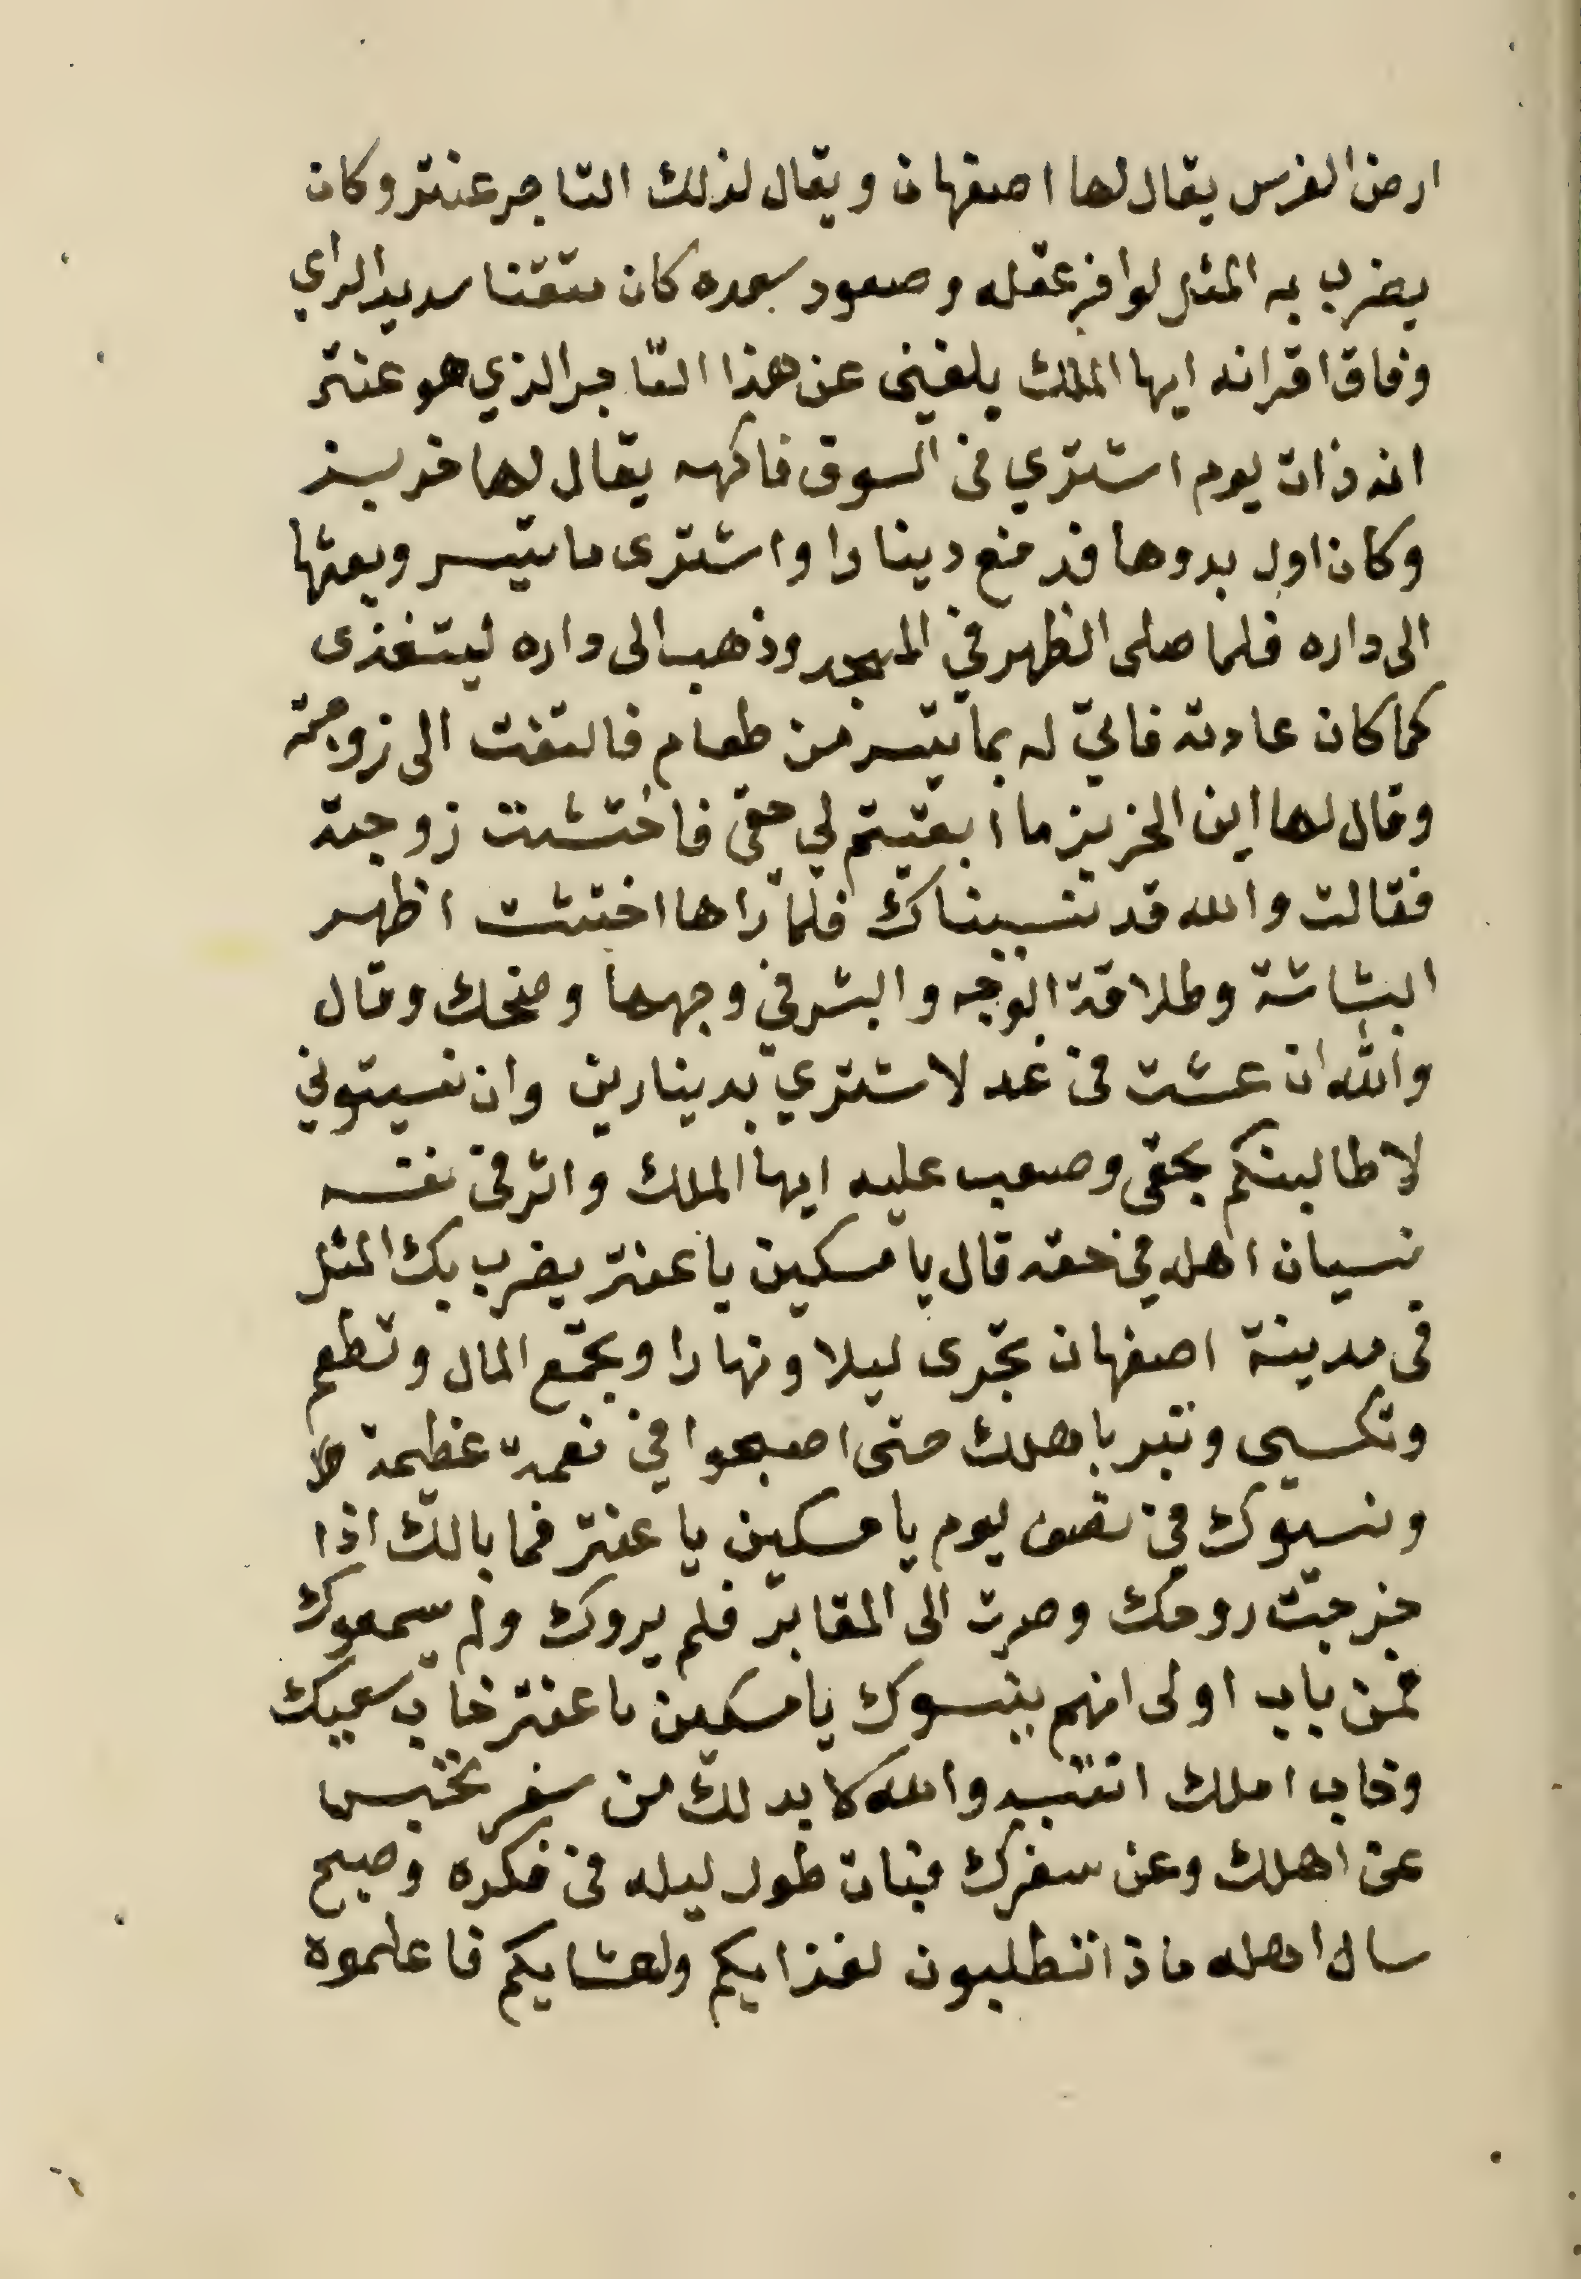 ارض الفرس يقال لها اصفهان ويقال لذلك التاجر عنتر وكان
يضرب به المثل لوافر عقله وصعود سعده كان متقنا سديد الراي
وفاق اقرانه ايها الملك بلغنى عن هذا التاجر الذي هو عنتر
انه ذات يوم اشتري فى السوق فاكهه يقال لها خربز
وكان اول بدوها فدفع دينارا واشترى ما تيسر وبعثها
الى داره فلما صلى الظهر في المسجد وذهب الى داره ليتغذى
كما كان عادته فاتي له بما تيسر من طعام فالتفت الى زوجته
وقال لها اين الخربز ما ابقيتم لي حقى فاختشت زوجته
فقالت والله قد نسيناك فلما راها اختشت اظهر
البشاشة وطلاقة الوجه والبشر في وجهها وضحك وقال
والله ان عشت فى غد لاشتري بدينارين وان نسيتوني
لاطالبنكم بحقى وصعب عليه ايها الملك واثر فى نفسه
نسيان اهله في حقه قال يا مسكين يا عنتر يضرب بك المثل
فى مدينة اصفهان تجرى ليلا ونهارا وتجمع المال وتطعم
وتكسي وتبر باهلك حتى اصبحوا في نعمة عظيمة
ونسيوك في نصف يوم يا مسكين يا عنتر فما بالك اذا
خرجت روحك وصرت الى المقابر فلم يروك ولم يسمعوك
فمن باب اولى انهم ينسوك يا مسكين يا عنتر خاب سعيك
وخاب املك انتبه والله لا بد لك من سفر تختبر
عن اهلك وعن سفرك فبات طول ليله فى فكره وصبح
سال اهله ماذا تطلبون لغذايكم ولعشايكم فاعلموه